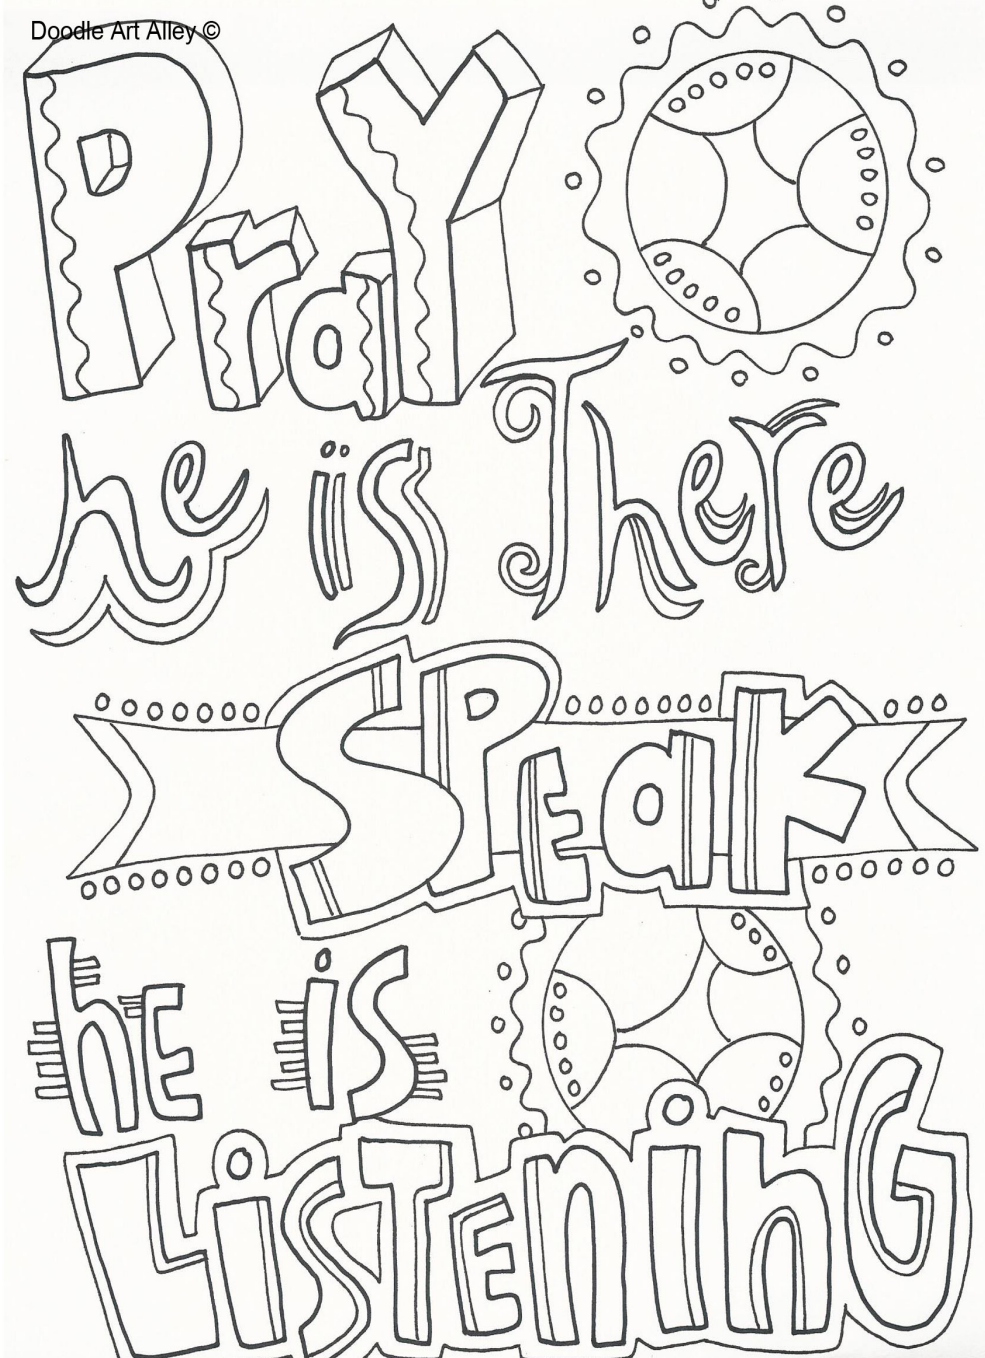 Doodle Art Alley ©
PraY
he is There
SPEaK
hE iS
LiSTENinG